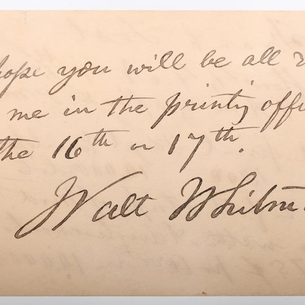 hope you will be all r
me in the printg offi
the 16th or 17th.
Walt Whitm